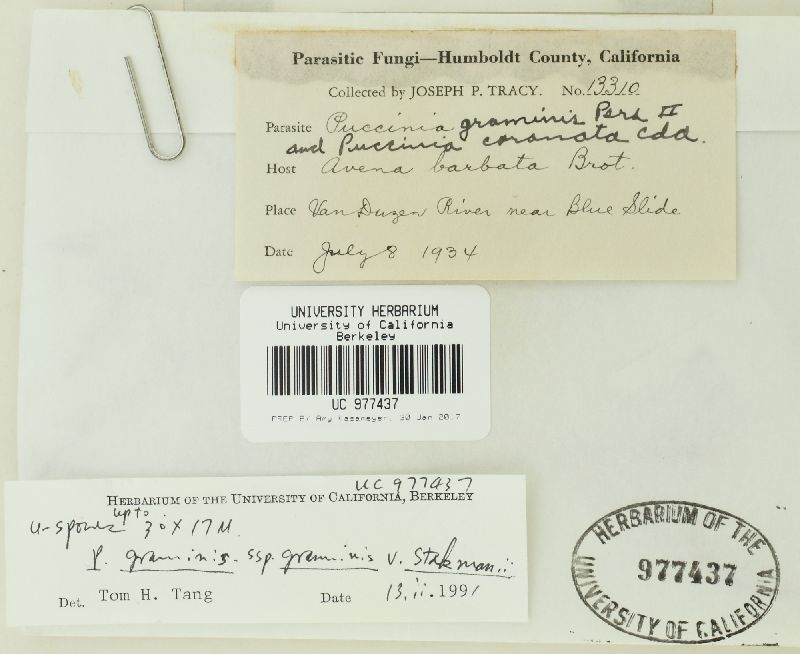 Parasitic Fungi—Humboldt County, California
Collected by JOSEPH P. TRACY. No. 13310
Parasite Puccinia graminis Pers II
and Puccinia coronata Cda.
Host Avena barbata Brot.
Place Van Duzen River near Blue Slide
Date July 8 1934
UNIVERSITY HERBARIUM
University of California
Berkeley
UC 977437
PREP BY Amy Kasameyer, 30 Jan 2017
UC 977437
HERBARIUM OF THE UNIVERSITY OF CALIFORNIA, BERKELEY
u-spores up to 30 X 17 µ.
P. graminis. ssp. graminis v. Stakmanii
Det. Tom H. Tang Date 13.ii.1991
HERBARIUM OF THE
977437
UNIVERSITY OF CALIFORNIA